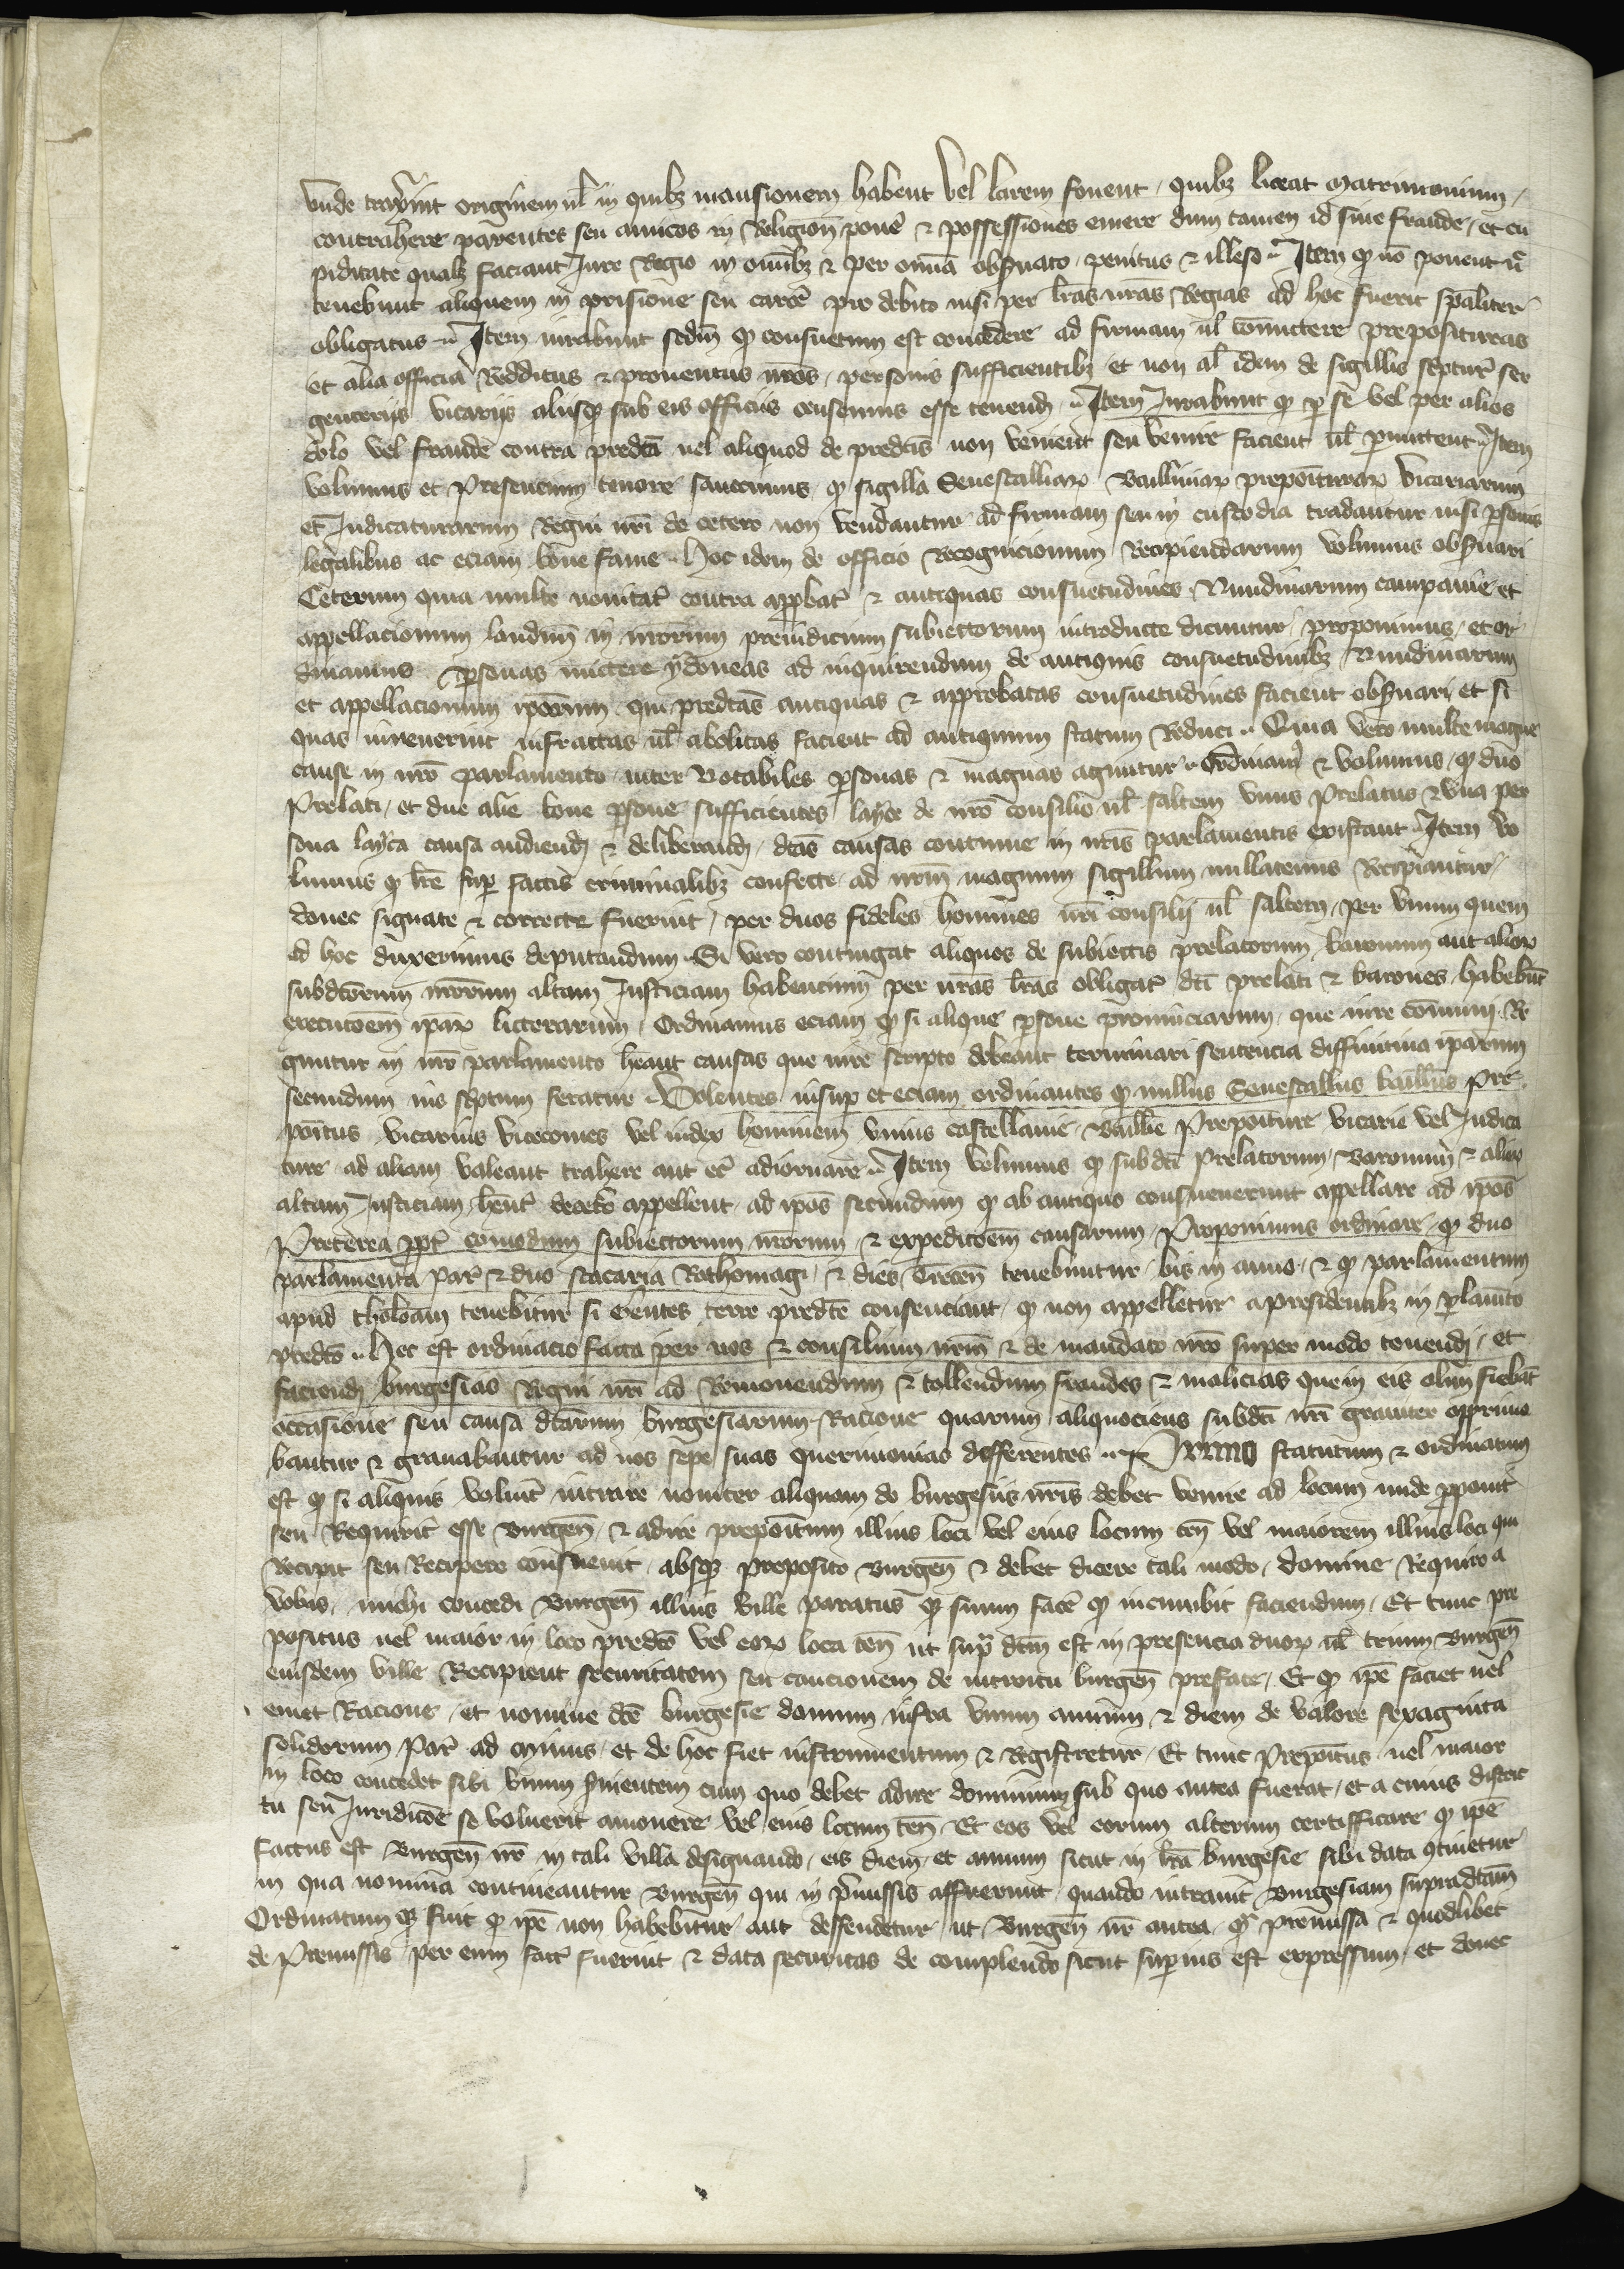 vnde traxerint originem ul̄ in quibȝ mansionem habent vel larem fouent / quibȝ liceat matrimonium /
contrahere parentes seu amicos in Religion̄ pone᷑ & possessiones emere dum tamen id sine fraude / et cu
piditate qualȝ faciant Jure Regio in om̄ibȝ & per om̄ia obs̄uato / penitus & illeso ·· Item qd̓ nō ponent n̄
tenebunt aliquem in prisione seu carc̓e pro debito nisi per l̄ras nr̄as Regias ad hoc fuerit sp̄aliter
obligatus ·· Item iurabunt scdm̄ qd̓ consuetum est concedere ad firmam ul̄ com̄ittere preposituras
et alia officia Redditus & prouentus nr̄os / personis sufficientibȝ / et non al̄ idem de sigillis sc̓ptur̄ ser
genterijs vicarijs alijsqȝ sub eis officijs censemus esse tenend̄ ·· Item Jurabunt qd̓ p̱ se vel per alios
dolo vel fraude contra predc̄a uel aliquod de predc̄is non venient seu venire facient ul̄ p̱mittent ·· Item
volumus et Presencium tenore sanccimus / qd̓ sigilla Senescalliaꝝ Bailliuiaꝝ prepōituraꝝ vicariarum
et Judicaturarum Regni nr̄i de cetero non vendantur ad firmam seu in custodia tradantur nisi p̱sonis
legalibus ac eciam bone fame ·· Hoc idem de officio Recognicionum Recipiendarum volumus obs̄uari
Ceterum quia multe nouitat̄ contra app̱bat̄ & antiquas consuetudines / Nundinarum campanie et
appellacionum laudun̄ in nr̄orum preiudicium subiectorum introducte dicuntur / proponimus / et or
dinamus p̱sonas mictere ydoneas ad inquirendum de antiquis consuetudinibȝ Nundinarum
et appellacionum ip̄orum / qui predc̄as antiquas & approbatas consuetudines facient obs̄uari / et si
quas inuenerint infractas ul̄ abolitas facient ad antiquum statum Reduci ·· Quia vero multe magne
cause in nr̄o parlamento / inter Notabiles p̱sonas & magnas aguntur ·· Ordinam̓ & volumus / qd̓ duo
Prelati / et due alie bone p̱sone sufficientes / layce de nr̄o consilio ul̄ saltem vnus Prelatus & vna per
sona layca causa audiend̄ & deliberand̄ / dc̄as causas continue in nr̄is parlamentis existant ·· Item vo
lumus qd̓ l̄re sup̱ factis criminalibȝ confecte / ad nr̄m magnum sigillum nullatenus Recipiantur /
donec signate & correcte fuerint / per duos fideles homines nr̄i consilij ul̄ saltem / per vnum quem
ad hoc duxerimus deputandum ·· Si vero contingat aliquos de subiectis prelatorum / baronum aut alioꝝ
subdc̄orum nr̄orum altam Justiciam habencium / per nr̄as l̄ras obligar̄ dc̄i prelati & barones / habebūt
execuc̄oem ip̄aꝝ litterarum / Ordinamus eciam qd̓ si alique p̱sone prouinciarum / que iure com̄uni Re
guntur in nr̄o parlamento h̄eant causas que iure scripto debeant terminari sentencia diffinitiua ip̄arum
secundum ius sc̓ptum feratur ·· Volentes insup̱ et eciam ordinantes qd̓ nullus Senescallus bailliuus pre
pōitus / vicarius vicecomes vel iudex hominem vnius castellanie / Baillie Prepōiture vicarie vel Judica
ture ad aliam valeant trahere aut ec̄ adiornare ·· Item volumus qd̓ subdc̄i Prelatorum / Baronum & alioꝝ
altam Justiciam h̄ent̄ decet̓o appellent / ad ip̄os secundum qd̓ ab antiquo consueuerunt appellare ad ip̄os
Preterea pp̱t̓ comodum subiectorum nr̄orum & expedic̄oem causarum / Proponimus ordinare / qd̓ duo
parlamenta Par̄ & duo scacaria Rothomagi / & dies Trecen̄ tenebuntur / bis in anno / & qd̓ parlamentum
apud tholōam tenebitur si Gentes terre predc̄e consenciant / qd̓ non appelletur apresidentibȝ in p̱lam̄to
predc̄o ·· Hec est ordinacio facta per nos & consilium nr̄m & de mandato nr̄o super modo tenend̄ / et
faciend̄ burgesias Regni nr̄i ad Remouendum & tollendum fraudes & malicias que in eis olim fiebāt
occasione seu causa dc̄arum burgesiarum / Racione quarum aliquociens subdc̄i nr̄i grauiter opprime
bantur & grauabantur ad nos sepe suas querimonias defferentes ·· Primo statutum & ordinatum
est qd̓ si aliquis voluit̓ intrare nouiter aliquam de burgesiis nr̄is debet venire ad locum unde p̱ponit̓
seu Requirit̓ esse Burgen̄ / & adire prepōitum illius loci vel eius locum ten̄ vel maiorem illius loci qui
Recipit seu Recipere consueuit / absqȝ preposito Burgen̄ & debet dicere tali modo / domine Requiro a
vobis / michi concedi Burgen̄ illius ville paratus qȝ sum face᷑ qd̓ incumbit faciendum / Et tunc pre
positus uel maior in loco predc̄o vel eoꝝ loca ten̄ ut sup̱ dc̄m est in presencia duoꝝ ul̄ trium Burgen̄
eiusdem ville Recipient securitatem seu caucionem de introitu burgen̄ prefate / Et qd̓ ip̄e faciet uel
emet Racione / et nomine dc̄e burgesie domum infra vnum annum & diem de valore sexaginta
solidorum Par̄ ad minus / et de hoc fiet instrumentum & Registretur / Et tunc Prepōitus uel maior
in loco concedet sibi vnum s̄uientem cum quo debet adire dominum sub quo antea fuerat / et a cuius district
tu seu Juridic̄oe se voluerit amouere vel eius locum ten̄ / Et eos vel eorum alterum certifficare qd̓ ip̄e
factus est Burgen̄ nr̄ in tali villa designando / eis diem et annum sicut in l̄ra burgesie sibi data ꝯtinetur
in qua nomina contineantur Burgen̄ qui in p̓missis affuerunt / quando intrauit Burgesiam supradc̄am
Ordinatum qȝ fuit qd̓ ip̄e non habebitur / aut deffendetur / ut Burgen̄ nr̄ antea / qȝ premissa & quodlibet
de Premissis / per eum fact̄ fuerint & data securitas de complendo sicut sup̱ius est expressum / et donec